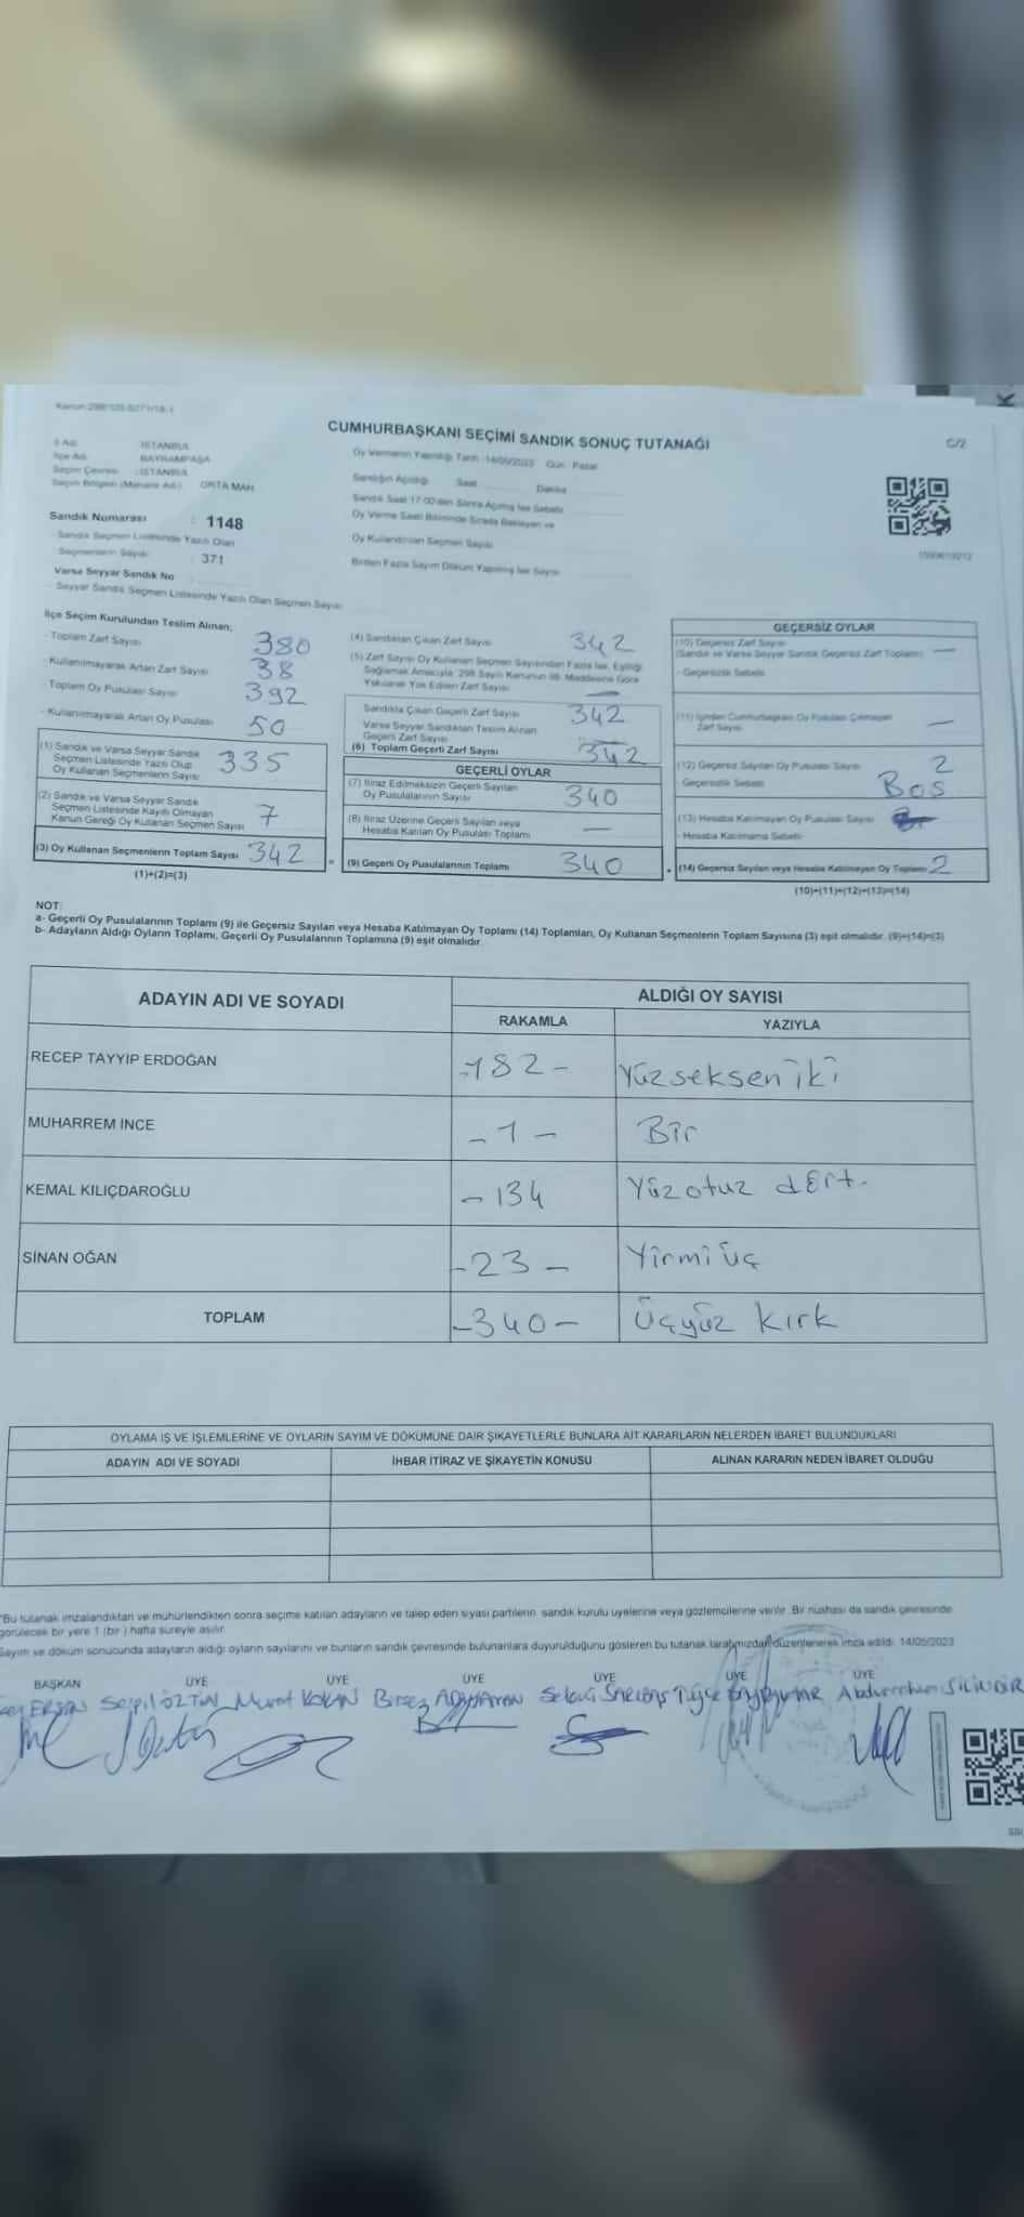 CUMHURBAŞKANI SEÇİMİ SANDIK SONUÇ TUTANAĞI
C/2
İl Adı İSTANBUL
İlçe Adı BAYRAMPAŞA
Seçim Çevresi İSTANBUL
Seçim Bölgesi (Mahalle Adı) ORTA MAH
Oy Vermenin Yapıldığı Tarih :14/05/2023 Gün : Pazar
Sandığın Açıldığı Saat Dakika
Sandık Saat 17:00'den Sonra Açılmış İse Sebebi
Oy Verme Saati Bitiminde Sırada Bekleyen ve
Oy Kullandırılan Seçmen Sayısı
Birden Fazla Sayım Döküm Yapılmış İse Sayısı
Sandık Numarası : 1148
Sandık Seçmen Listesinde Yazılı Olan
Seçmenlerin Sayısı 371
Varsa Seyyar Sandık No
Seyyar Sandık Seçmen Listesinde Yazılı Olan Seçmen Sayısı
İlçe Seçim Kurulundan Teslim Alınan;
- Toplam Zarf Sayısı 380
- Kullanılmayarak Artan Zarf Sayısı 38
- Toplam Oy Pusulası Sayısı 392
- Kullanılmayarak Artan Oy Pusulası 50
(1) Sandık ve Varsa Seyyar Sandık
Seçmen Listesinde Yazılı Olup
Oy Kullanan Seçmenlerin Sayısı 335
(2) Sandık ve Varsa Seyyar Sandık
Seçmen Listesinde Kayıtlı Olmayan
Kanun Gereği Oy Kullanan Seçmen Sayısı 7
(3) Oy Kullanan Seçmenlerin Toplam Sayısı 342
(1)+(2)=(3)
(4) Sandıktan Çıkan Zarf Sayısı 342
(5) Zarf Sayısı Oy Kullanan Seçmen Sayısından Fazla İse, Eşitliği
Sağlamak Amacıyla 298 Sayılı Kanunun 98. Maddesine Göre
Yakılarak Yok Edilen Zarf Sayısı —
Sandıkta Çıkan Geçerli Zarf Sayısı 342
Varsa Seyyar Sandıktan Teslim Alınan
Geçerli Zarf Sayısı —
(6) Toplam Geçerli Zarf Sayısı 342
GEÇERLİ OYLAR
(7) İtiraz Edilmeksizin Geçerli Sayılan
Oy Pusulalarının Sayısı 340
(8) İtiraz Üzerine Geçerli Sayılan veya
Hesaba Katılan Oy Pusulası Toplamı —
(9) Geçerli Oy Pusulalarının Toplamı 340
GEÇERSİZ OYLAR
(10) Geçersiz Zarf Sayısı
(Sandık ve Varsa Seyyar Sandık Geçersiz Zarf Toplamı) —
- Geçersizlik Sebebi
(11) İçinden Cumhurbaşkanı Oy Pusulası Çıkmayan
Zarf Sayısı —
(12) Geçersiz Sayılan Oy Pusulası Sayısı 2
Geçersizlik Sebebi Boş
(13) Hesaba Katılmayan Oy Pusulası Sayısı
- Hesaba Katılmama Sebebi
(14) Geçersiz Sayılan veya Hesaba Katılmayan Oy Toplamı 2
(10)+(11)+(12)+(13)=(14)
NOT:
a- Geçerli Oy Pusulalarının Toplamı (9) ile Geçersiz Sayılan veya Hesaba Katılmayan Oy Toplamı (14) Toplamları, Oy Kullanan Seçmenlerin Toplam Sayısına (3) eşit olmalıdır. (9)+(14)=(3)
b- Adayların Aldığı Oyların Toplamı, Geçerli Oy Pusulalarının Toplamına (9) eşit olmalıdır.
ADAYIN ADI VE SOYADI
ALDIĞI OY SAYISI
RAKAMLA YAZIYLA
RECEP TAYYİP ERDOĞAN -182- Yüzseksen iki
MUHARREM İNCE -1- Bir
KEMAL KILIÇDAROĞLU -134 Yüzotuz dört.
SİNAN OĞAN -23- Yirmi üç
TOPLAM -340- Üçyüz kırk
OYLAMA İŞ VE İŞLEMLERİNE VE OYLARIN SAYIM VE DÖKÜMÜNE DAİR ŞİKAYETLERLE BUNLARA AİT KARARLARIN NELERDEN İBARET BULUNDUKLARI
ADAYIN ADI VE SOYADI İHBAR İTİRAZ VE ŞİKAYETİN KONUSU ALINAN KARARIN NEDEN İBARET OLDUĞU
"Bu tutanak imzalandıktan ve mühürlendikten sonra seçime katılan adayların ve talep eden siyasi partilerin sandık kurulu üyelerine veya gözlemcilerine verilir. Bir nüshası da sandık çevresinde
görülecek bir yere 1 (bir) hafta süreyle asılır.
Sayım ve döküm sonucunda adayların aldığı oyların sayılarını ve bunların sandık çevresinde bulunanlara duyurulduğunu gösteren bu tutanak tarafımızdan düzenlenerek imza edildi. 14/05/2023
BAŞKAN ÜYE ÜYE ÜYE ÜYE ÜYE ÜYE
Murat